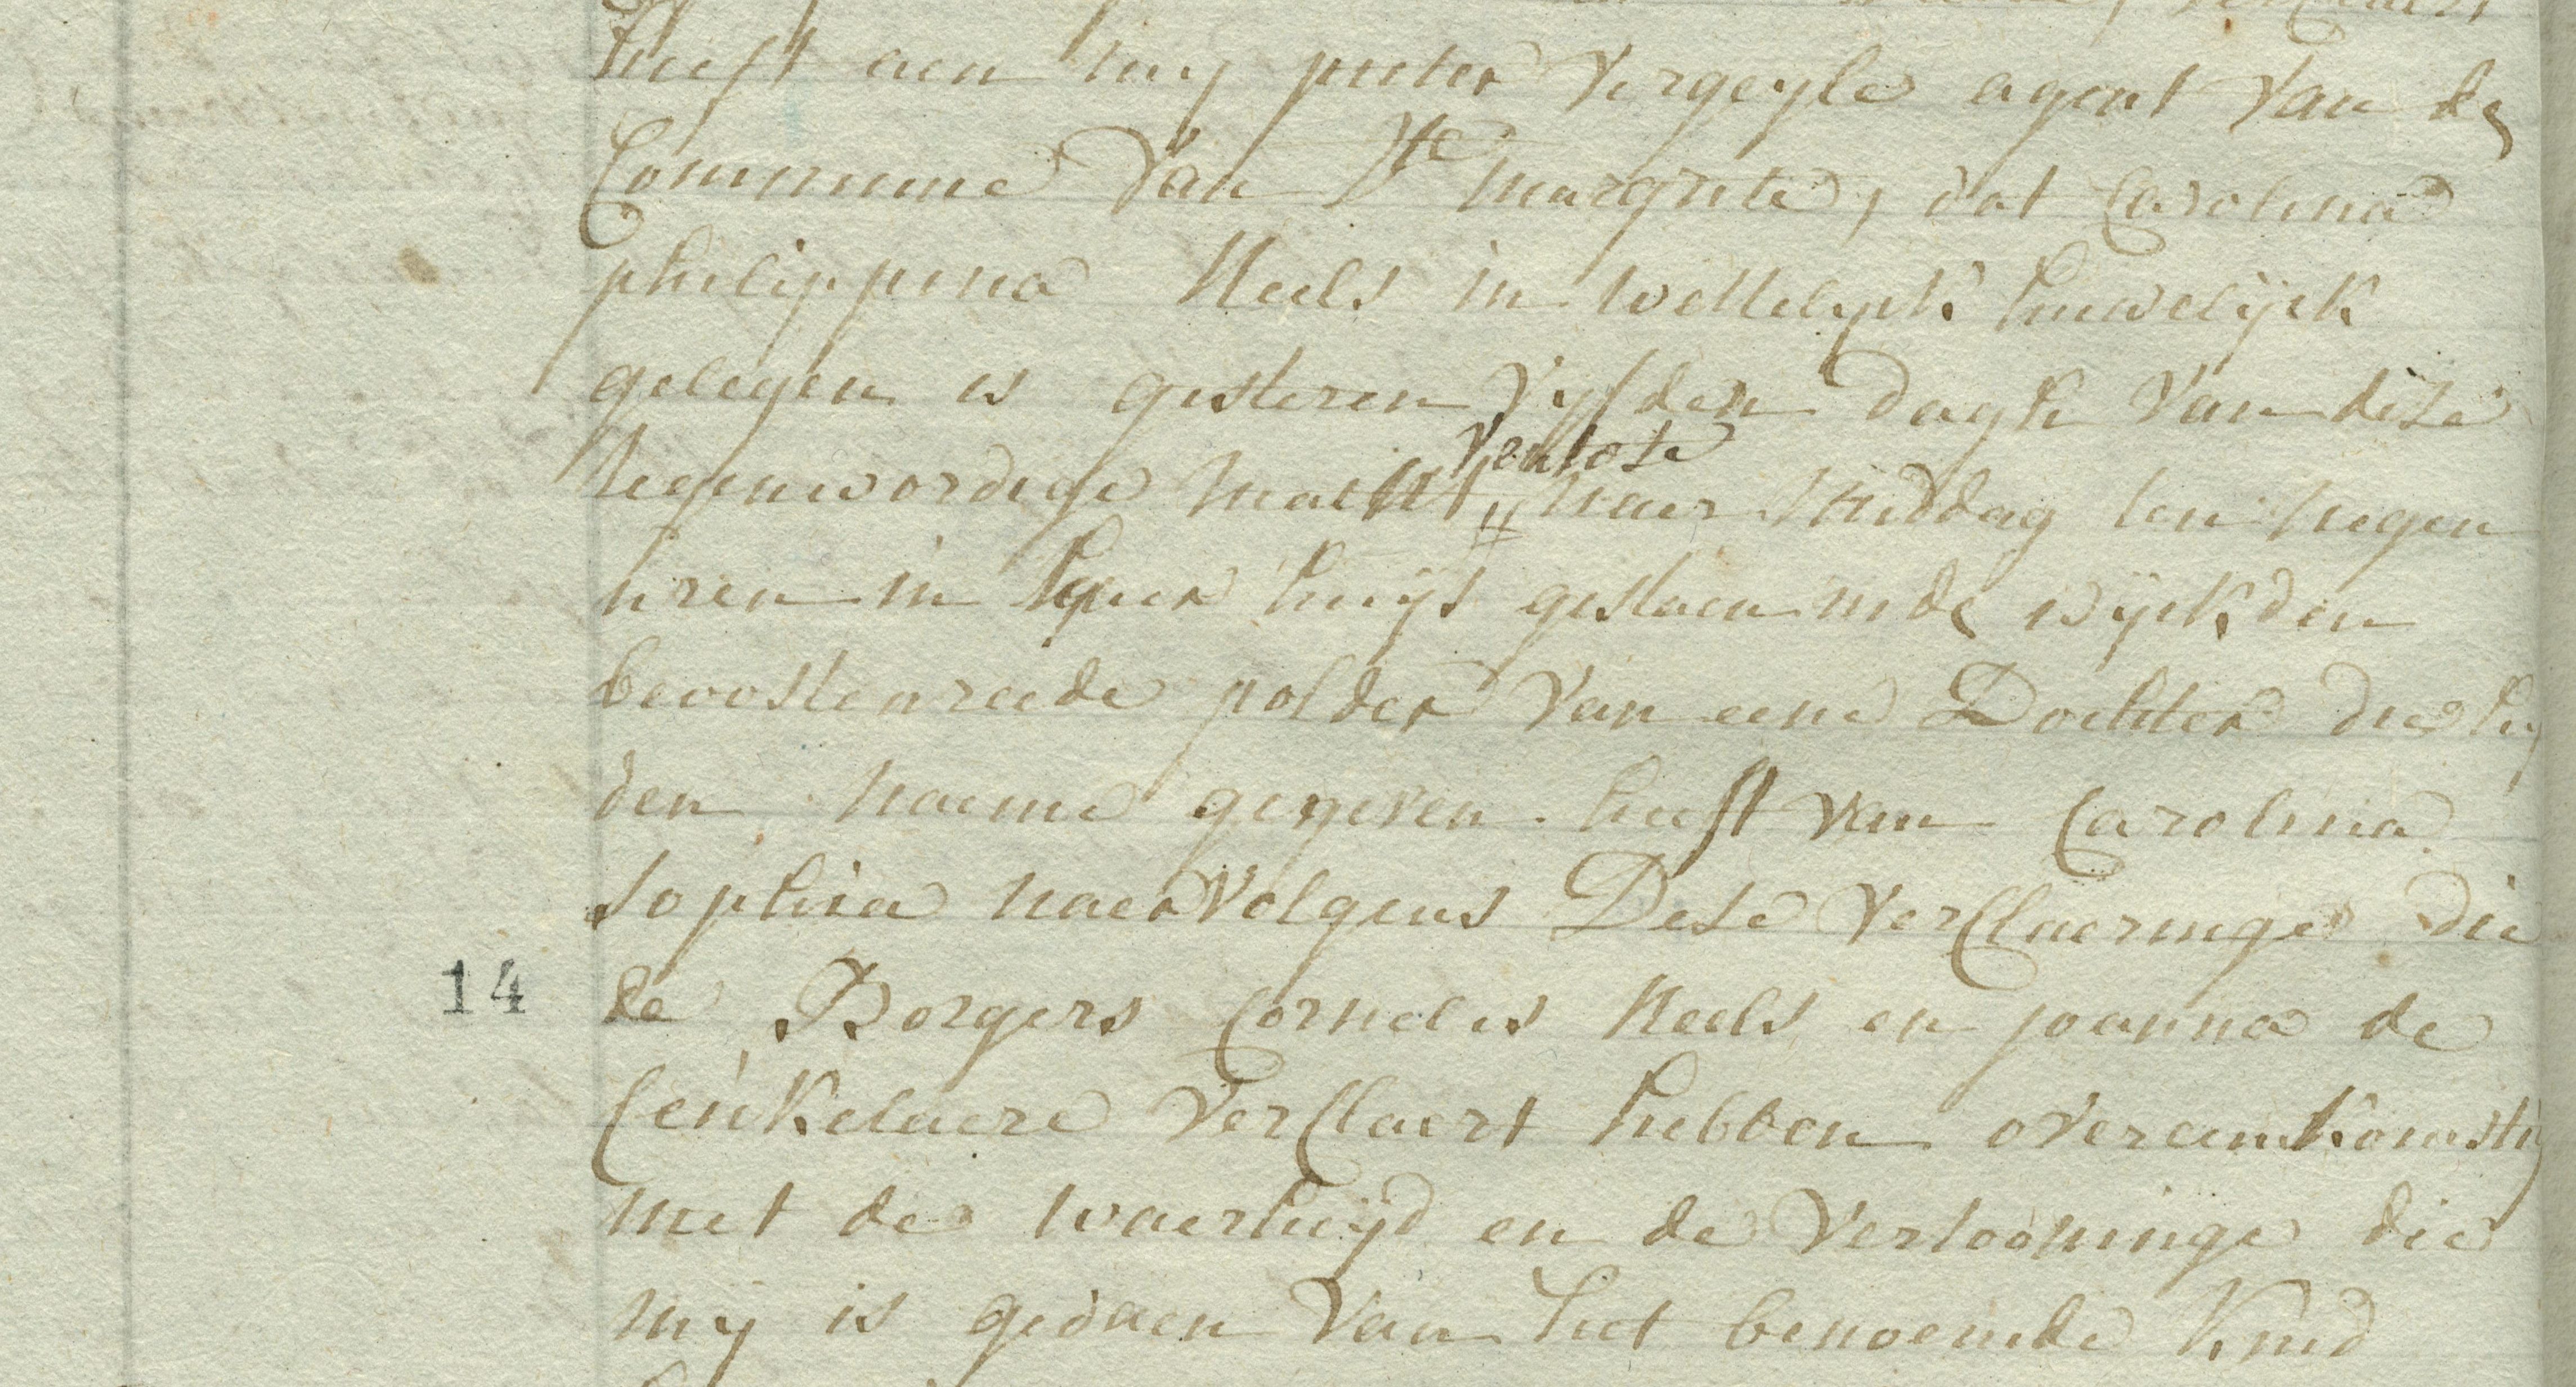 heeft aen my pieter Vergeyle agent Van de
Commune Van Ste margrite, dat Carolina
philippina Neels in wettelyck huwelijck
gelegen is gisteren Vyfden dagh Van dese
tegenwordige maent Ventose naer Middag ten negen
uren in haer huijs gestaen in de wijck den
beoostenreede polder Van eene Dochter die hy
den naeme gegeven heeft van Carolina
Sophia naer Volgens Dese Verclaeringe die
14 de Borgers Cornelis Neels en joanna de
Ceukelaere Verclaert hebben overeenkomstig
met de waerheijd en de Vertooninge die
my is gedaen Van het benoemde Kind